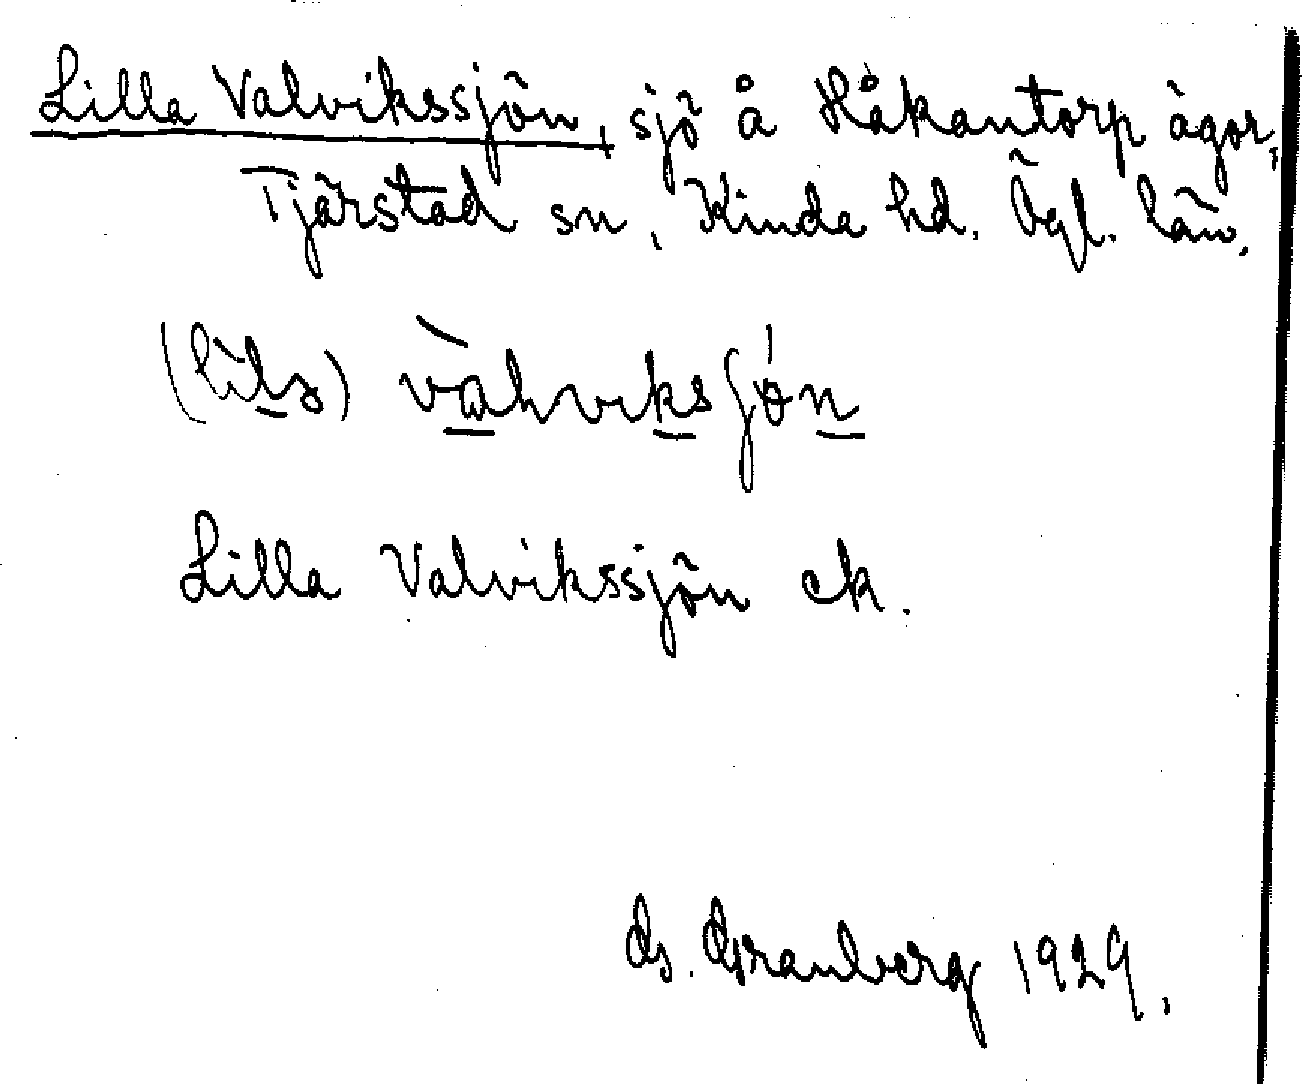 Lilla Valvikssjön, sjö å Håkantorp ägor,
Tjärstad sn, Kinda hd. Ögl. län.
(lìla) vàlviksjón
Lilla Valvikssjön ek.
G. Granberg 1929.